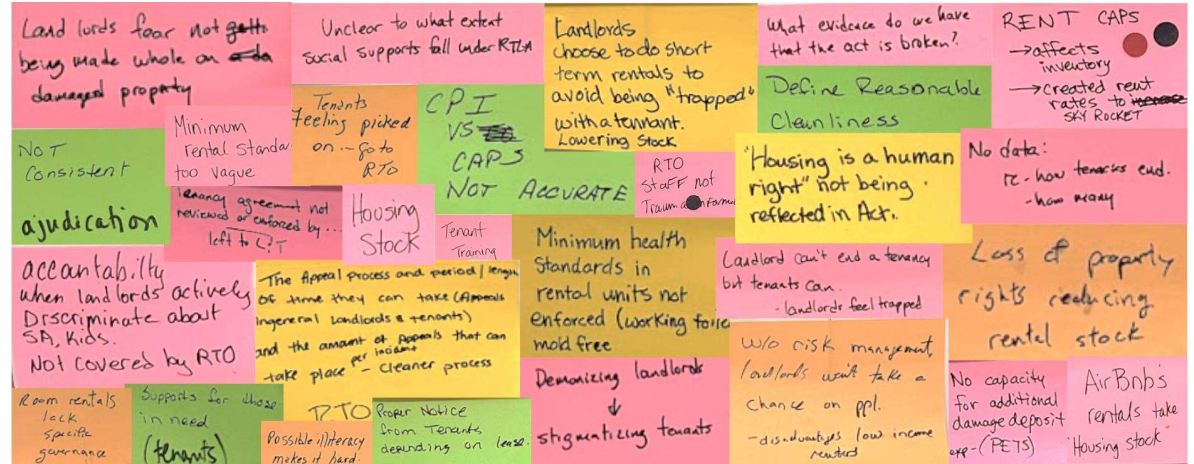 Land lords fear not
being made whole on
damaged property
Unclear to what extent
social supports fall under RTLA
Landlords
choose to do short
term rentals to
avoid being "trapped"
with a tennant.
Lowering Stock
What evidence do we have
that the act is broken?
RENT CAPS
→ affects
inventory
→ created rent
rates to
SKY ROCKET
Minimum
rental Standa
too vague
Tenants
feeling picked
on - go to
RTO
CPI
VS
CAPS
NOT ACCURATE
Define Reasonable
Cleanliness
NOT
Consistent
ajudication
Tenancy agreement not
reviewed or enforced by...
left to L?T
Housing
Stock
Tenant
Training
RTO
Staff not
Trauma Inform
"Housing is a human
right" not being
reflected in Act.
No data:
re - how tenacies end.
- how many
accountabilty
when landlords actively
Discriminate about
SA, Kids.
Not Covered by RTO
The Appeal process and period/length
of time they can take (Appeals
in general Landlords & tenants)
and the amount of Appeals that can
take place per incident - cleaner process
RTO
Minimum health
Standards in
rental units not
enforced (working toile
mold free
Landlord can't end a tenancy
but tenants can.
- landlords feel trapped
Loss of property
rights reducing
rental stock
Room rentals
lack
specific
governance
Supports for those
in need
(tenants)
Possible illiteracy
makes it hard.
Proper Notice
from Tenants
depending on lease.
Demonizing landlords
↓
stigmatizing tenants
W/o risk management,
landlords won't take a
chance on ppl.
- disadvantages low income
renters
No capacity
for additional
damage deposit
exp - (PETS)
AirBnb's
rentals take
Housing stock